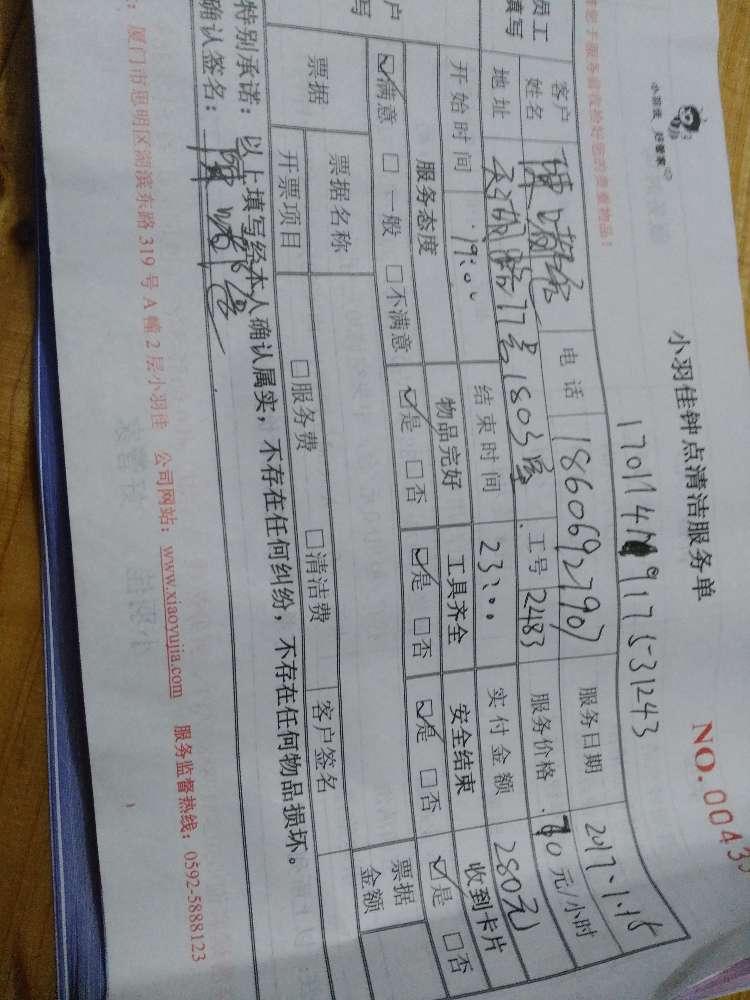 小羽佳 好管家
小羽佳钟点清洁服务单
NO. 0043
服务前收检好您的贵重物品！
员工
填写
客户
姓名
电话
18606927907
服务日期
2017.1.15
地址
17号1803室
工号
2483
服务价格
70元/小时
开始时间
19:00
结束时间
23:00
实付金额
280元
户
写
服务态度
物品完好
工具齐全
安全结束
收到卡片
☑满意 □一般 □不满意
☑是 □否
☑是 □否
☑是 □否
☑是 □否
票据
票据名称
□服务费 □清洁费
客户签名
票据
金额
开票项目
特别承诺：以上填写经本人确认属实，不存在任何纠纷，不存在任何物品损坏。
确认签名：
：厦门市思明区湖滨东路 319 号 A 幢 2 层小羽佳 公司网站：www.xiaoyujia.com 服务监督热线：0592-5888123